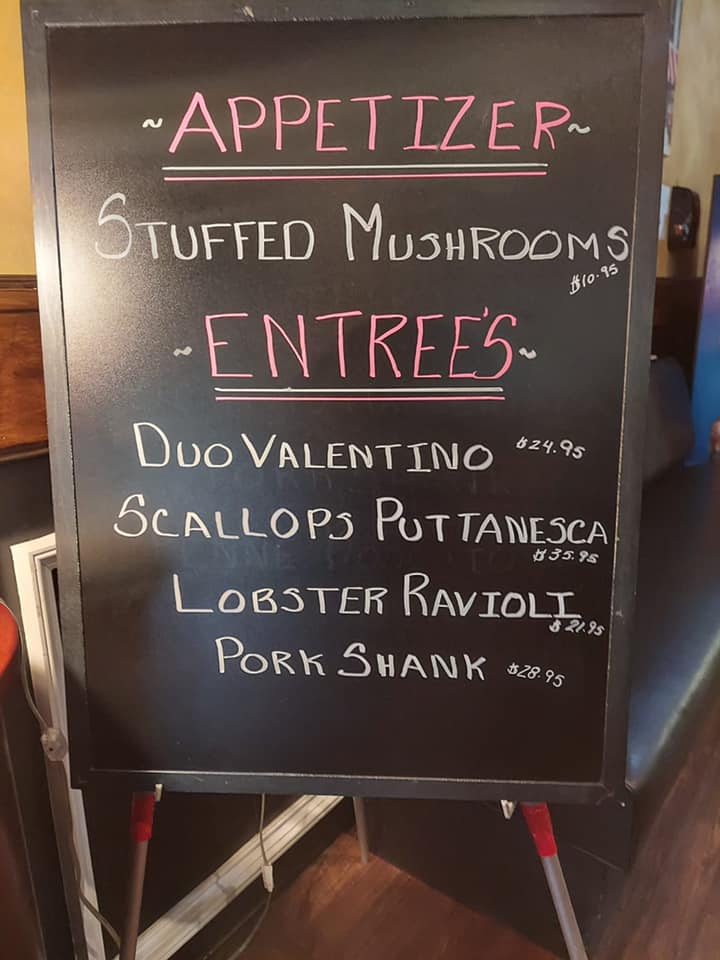 ~APPETIZER~
STUFFED MUSHROOMS
$10.95
~ENTREE'S~
DUO VALENTINO $24.95
SCALLOPS PUTTANESCA
$35.95
LOBSTER RAVIOLI
$21.95
PORK SHANK $28.95